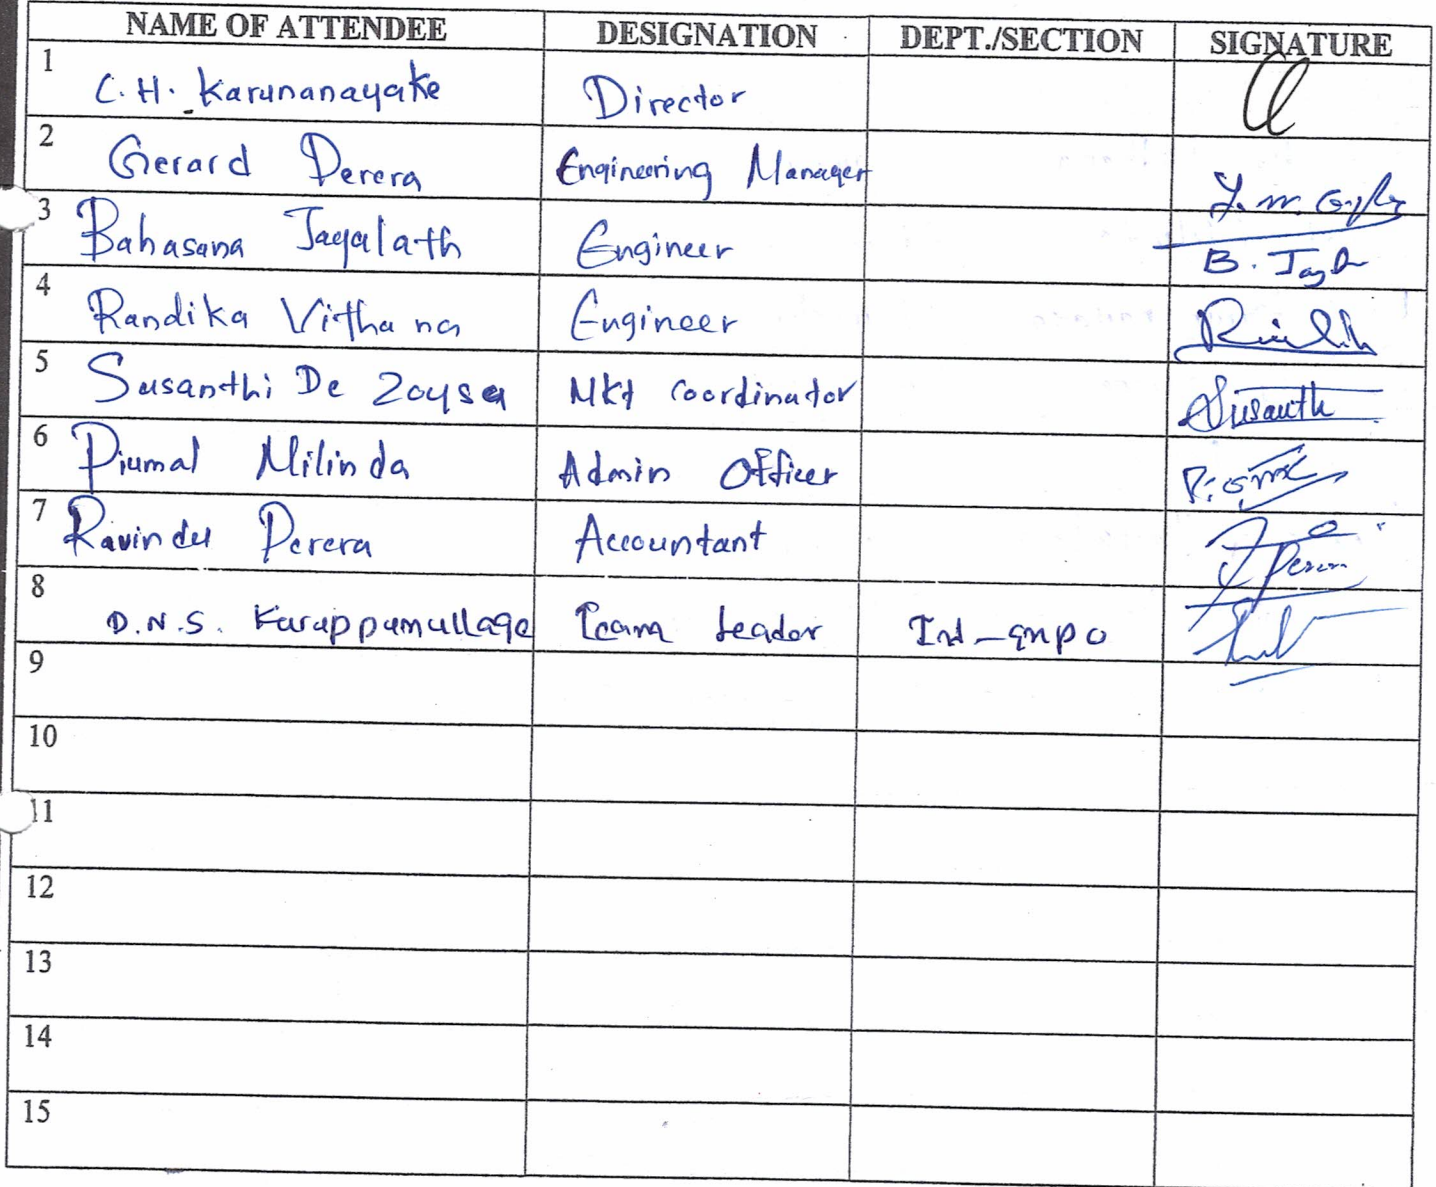 NAME OF ATTENDEE DESIGNATION DEPT./SECTION SIGNATURE
1 C. H. Karunanayake Director
2 Gerard Perera Engineering Manager
3 Bahasana Jayalath Engineer
4 Randika Vithana Engineer
5 Susanthi De Zoysa Mkt coordinator
6 Piumal Milinda Admin Officer
7 Ravindu Perera Accountant
8 D.N.S. Karuppamullage Team Leader
9
10
11
12
13
14
15